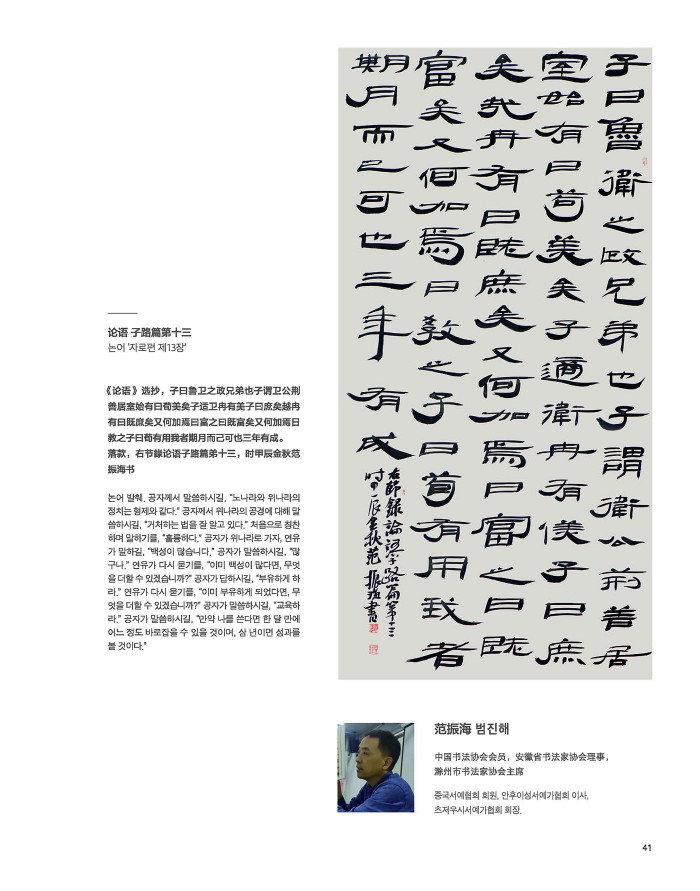 论语 子路篇第十三
논어 '자로편 제13장'
《论语》选抄，子曰鲁卫之政兄弟也子谓卫公荆
善居室始有曰荀美矣子适卫冉有美子曰庶矣越冉
有曰既庶矣又何加焉曰富之曰既富矣又何加焉日
教之子曰荀有用我者期月而己可也三年有成。
落款，右节錄论语子路篇第十三，时甲辰金秋范
振海书
논어 발췌, 공자께서 말씀하시길, "노나라와 위나라의
정치는 형제와 같다." 공자께서 위나라의 공경에 대해 말
씀하시길, "거처하는 법을 잘 알고 있다." 처음으로 칭찬
하며 말하기를, "훌륭하다." 공자가 위나라로 가자, 연유
가 말하길, "백성이 많습니다." 공자가 말씀하시길, "많
구나." 연유가 다시 묻기를, "이미 백성이 많다면, 무엇
을 더할 수 있겠습니까?" 공자가 답하시길, "부유하게 하
라." 연유가 다시 묻기를, "이미 부유하게 되었다면, 무
엇을 더할 수 있겠습니까?" 공자가 말씀하시길, "교육하
라." 공자가 말씀하시길, "만약 나를 쓴다면 한 달 만에
어느 정도 바로잡을 수 있을 것이며, 삼 년이면 성과를
볼 것이다."
子曰魯衛之政兄弟也子謂衛公荊善居
室始有曰苟美矣子適衛冉有僕子曰庶
矣哉冉有曰既庶矣又何加焉曰富之曰既
富矣又何加焉曰教之子曰苟有用我者
期月而已可也三年有成
右節錄論語子路篇第十三
时甲辰金秋范振海書
范振海 범진해
中国书法协会会员，安徽省书法家协会理事，
滁州市书法家协会主席
중국서예협회 회원, 안후이성서예가협회 이사,
츠저우시서예가협회 회장.
41